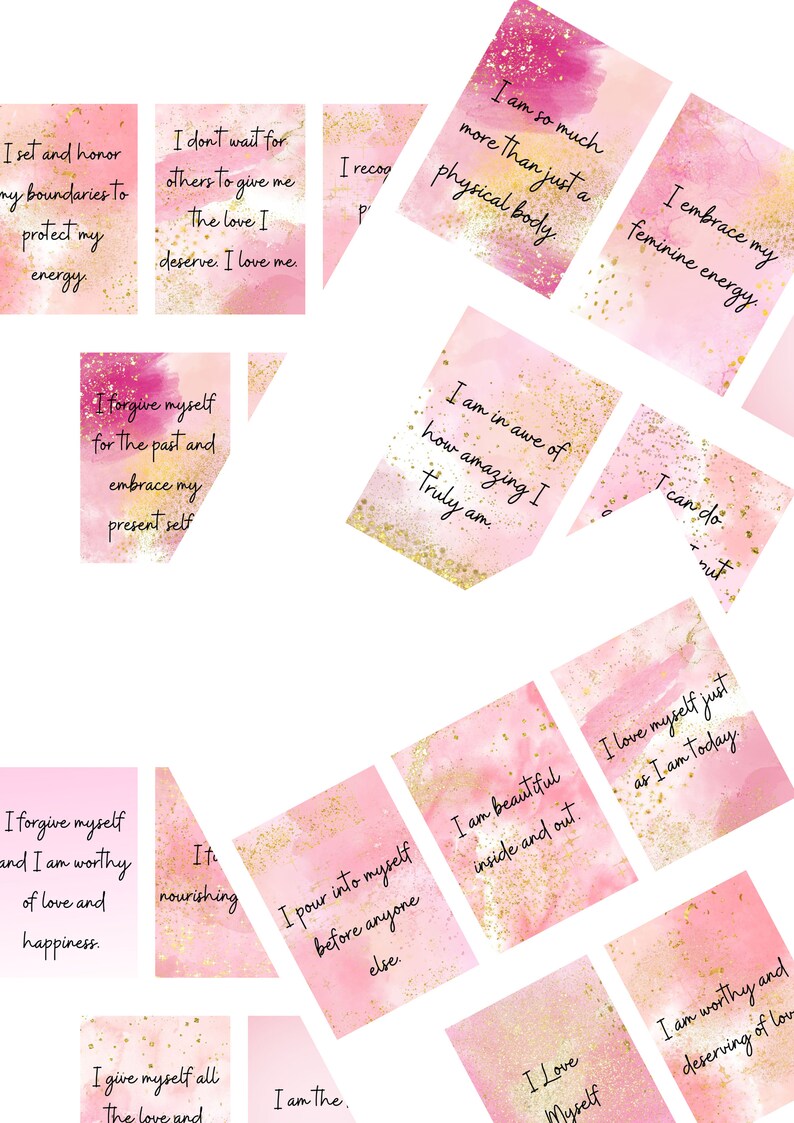 I set and honor
my boundaries to
protect my
energy.
I don't wait for
others to give me
the love I
deserve. I love me.
I am so much
more than just a
physical body.
I embrace my
feminine energy.
I forgive myself
for the past and
embrace my
present self
I am in awe of
how amazing I
truly am.
I can do
I forgive myself
and I am worthy
of love and
happiness.
nourishing
I pour into myself
before anyone
else.
I am beautiful
inside and out.
I love myself just
as I am today.
I give myself all
the love and
I am the
I Love
Myself
I am worthy and
deserving of